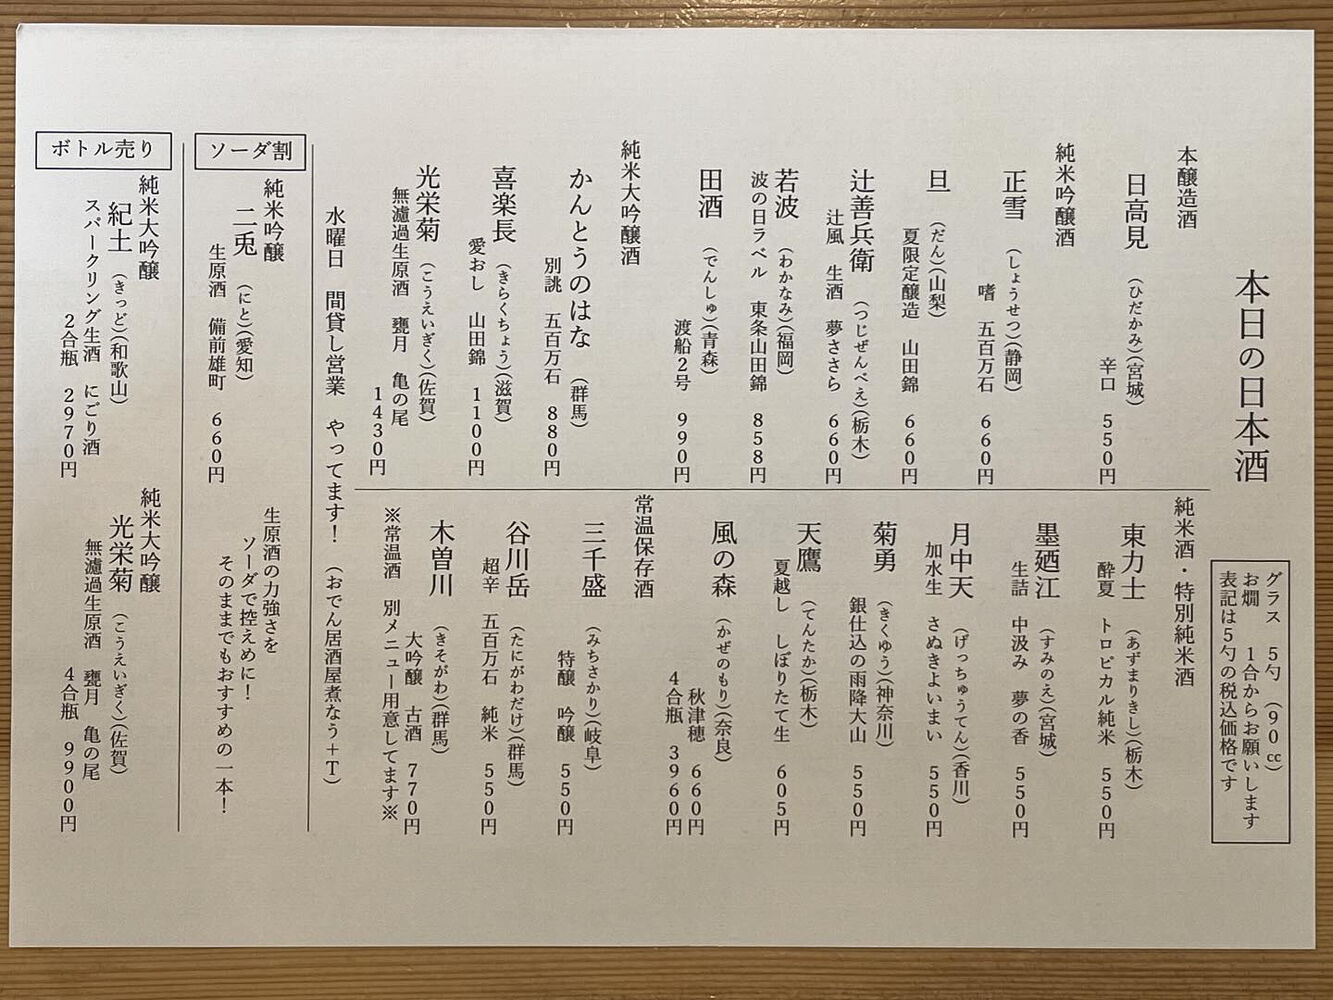 本日の日本酒
グラス　5勺　（90㏄）
お燗　1合からお願いします
表記は5勺の税込価格です
本醸造酒
日高見　（ひだかみ）（宮城）
辛口　550円
純米吟醸酒
正雪　（しょうせつ）（静岡）
嗜　五百万石　660円
旦　（だん）（山梨）
夏限定醸造　山田錦　660円
辻善兵衛　（つじぜんべえ）（栃木）
辻風　生酒　夢ささら　660円
若波　（わかなみ）（福岡）
波の日ラベル　東条山田錦　858円
田酒　（でんしゅ）（青森）
渡船2号　990円
純米大吟醸酒
かんとうのはな　（群馬）
別誂　五百万石　880円
喜楽長　（きらくちょう）（滋賀）
愛おし　山田錦　1100円
光栄菊　（こうえいぎく）（佐賀）
無濾過生原酒　甕月　亀の尾
1430円
純米酒・特別純米酒
東力士　（あずまりきし）（栃木）
酔夏　トロピカル純米　550円
墨廼江　（すみのえ）（宮城）
生詰　中汲み　夢の香　550円
月中天　（げっちゅうてん）（香川）
加水生　さぬきよいまい　550円
菊勇　（きくゆう）（神奈川）
銀仕込の雨降大山　550円
天鷹　（てんたか）（栃木）
夏越し　しぼりたて生　605円
風の森　（かぜのもり）（奈良）
秋津穂　660円
4合瓶　3960円
常温保存酒
三千盛　（みちさかり）（岐阜）
特醸　吟醸　550円
谷川岳　（たにがわだけ）（群馬）
超辛　五百万石　純米　550円
木曽川　（きそがわ）（群馬）
大吟醸　古酒　770円
※常温酒　別メニュー用意してます※
水曜日　間貸し営業　やってます！　（おでん居酒屋煮なう＋T）
ソーダ割
純米吟醸
二兎　（にと）（愛知）
生原酒　備前雄町　660円
生原酒の力強さを
ソーダで控えめに！
そのままでもおすすめの一本！
ボトル売り
純米大吟醸
紀土　（きっど）（和歌山）
スパークリング生酒　にごり酒
2合瓶　2970円
純米大吟醸
光栄菊　（こうえいぎく）（佐賀）
無濾過生原酒　甕月　亀の尾
4合瓶　9900円